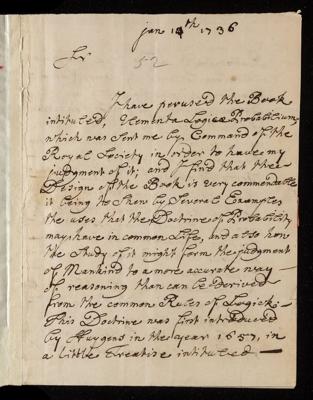 jan 14th 1736
Sr
52
I have perused the Book
intituled, Elementa Logicæ Probabilium,
which was sent me by Command of the
Royal Society in order to have my
judgment of it; and I find that the
Design of the Book is very commendable
it being to Shew by Several Examples
the uses that the Doctrine of Probability
may have in common Life, and also how
the Study of it might form the judgment
of Mankind to a more accurate way
of reasoning than can be derived
from the common Rules of Logick.
This Doctrine was first introduced
by Huygens in the year 1657, in
a little Treatise intituled